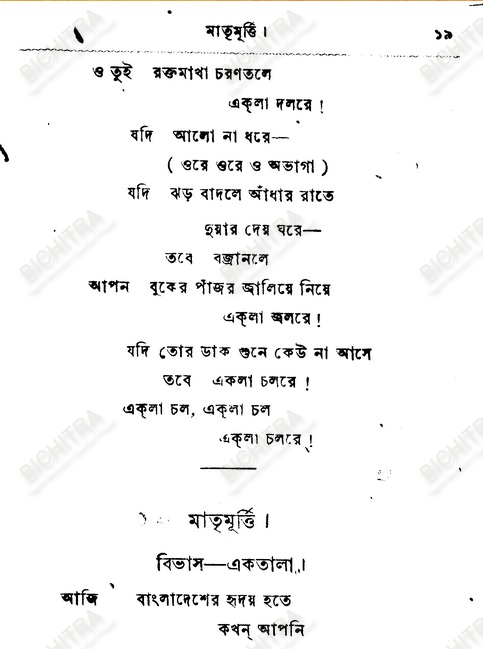 মাতৃমূর্ত্তি। ১৯
ও তুই রক্তমাখা চরণতলে
একলা দলরে!
যদি আলো না ধরে—
( ওরে ওরে ও অভাগা )
যদি ঝড় বাদলে আঁধার রাতে
দুয়ার দেয় ঘরে—
তবে বজ্রানলে
আপন বুকের পাঁজর জ্বালিয়ে নিয়ে
একলা জ্বলরে!
যদি তোর ডাক শুনে কেউ না আসে
তবে একলা চলরে!
এক্‌লা চল, এক্‌লা চল
এক্‌লা চলরে!
মাতৃমূর্ত্তি।
বিভাস—একতালা।
আজি বাংলাদেশের হৃদয় হতে
কখন্ আপনি
BICHITRA